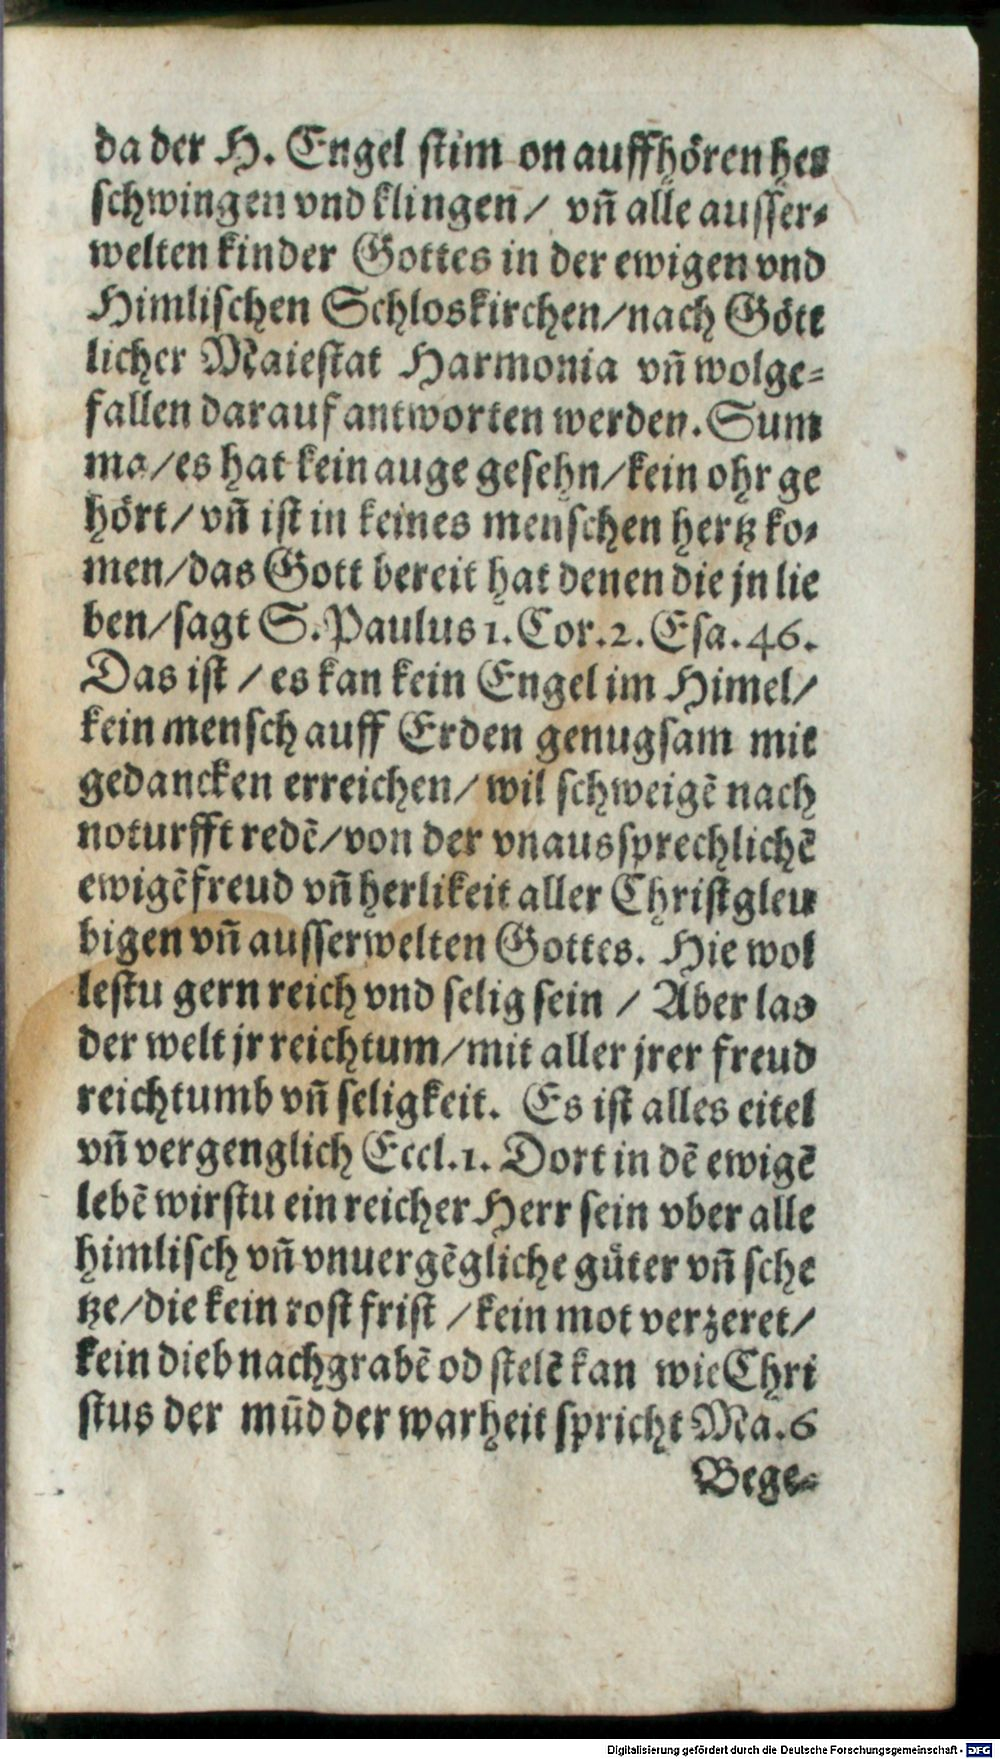 da der H. Engel stim on auffhören her
schwingen vnd klingen/ vñ alle ausser⸗
welten kinder Gottes in der ewigen vnd
Himlischen Schloskirchen/nach Gött
licher Maiestat Harmonia vñ wolge⸗
fallen darauf antworten werden. Sum
ma/es hat kein auge gesehn/kein ohr ge
hört/ vñ ist in keines menschen hertz ko⸗
men/das Gott bereit hat denen die jn lie
ben/sagt S. Paulus 1. Cor. 2. Esa. 46.
Das ist / es kan kein Engel im Himel/
kein mensch auff Erden genugsam mit
gedancken erreichen/ wil schweigẽ nach
noturfft redẽ/von der vnaussprechlichẽ
ewigẽ freud vñ herlikeit aller Christgleu
bigen vñ ausserwelten Gottes. Hie wol
lestu gern reich vnd selig sein / Aber las
der welt jr reichtum/mit aller jrer freud
reichtumb vñ seligkeit. Es ist alles eitel
vñ vergenglich Eccl. 1. Dort in dẽ ewigẽ
lebẽ wirstu ein reicher Herr sein vber alle
himlisch vñ vnuergẽgliche güter vñ sche
tze/die kein rost frist / kein mot verzeret/
kein dieb nachgrabẽ od stelẽ kan wie Chri
stus der mũd der warheit spricht Ma. 6
Bege⸗
Digitalisierung gefördert durch die Deutsche Forschungsgemeinschaft - DFG